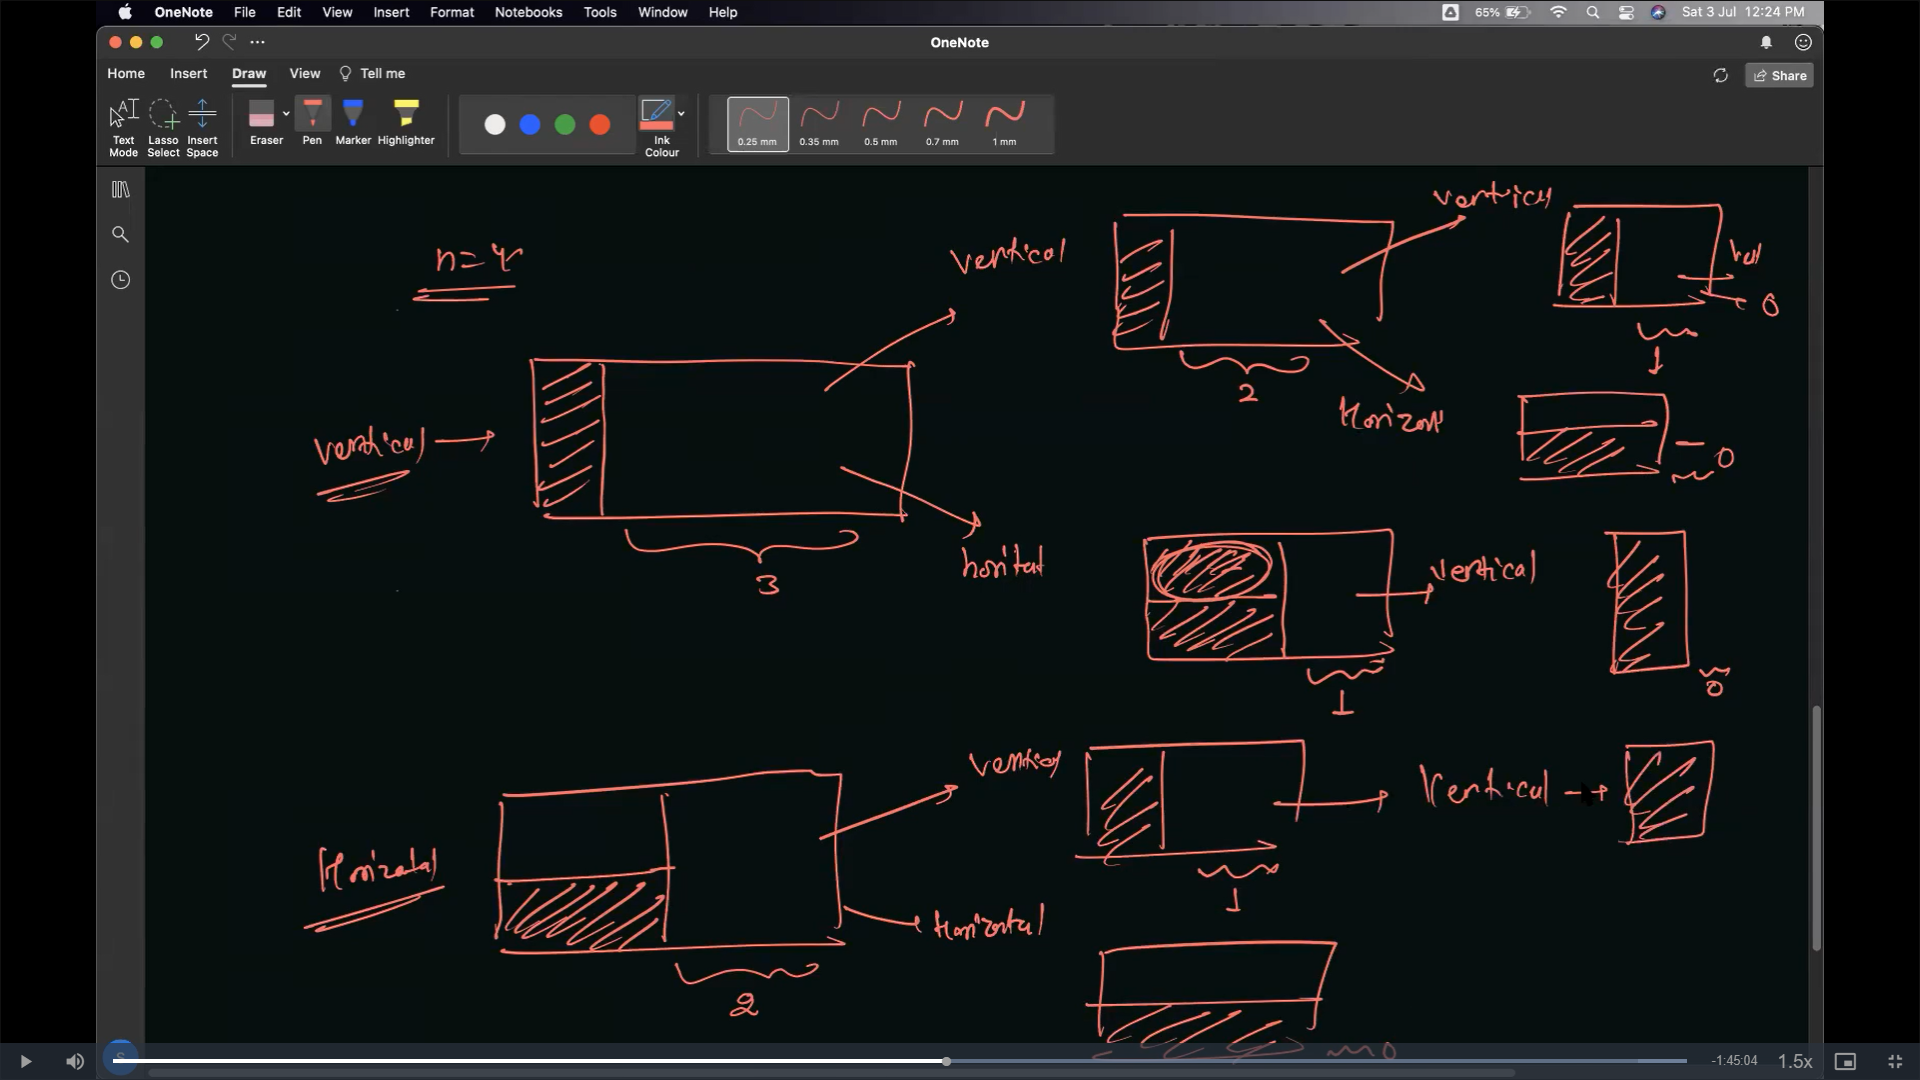 OneNote File Edit View Insert Format Notebooks Tools Window Help 65% Sat 3 Jul 12:24 PM
OneNote
Home Insert Draw View Tell me Share
Text Mode Lasso Select Insert Space Eraser Pen Marker Highlighter Ink Colour 0.25 mm 0.35 mm 0.5 mm 0.7 mm 1 mm
n=4
vertical
vertical
3
vertical
2
Horizon
1
0
0
vertical
1
0
Horizontal
2
Horizontal
1
Vertical
0
-1:45:04 1.5x